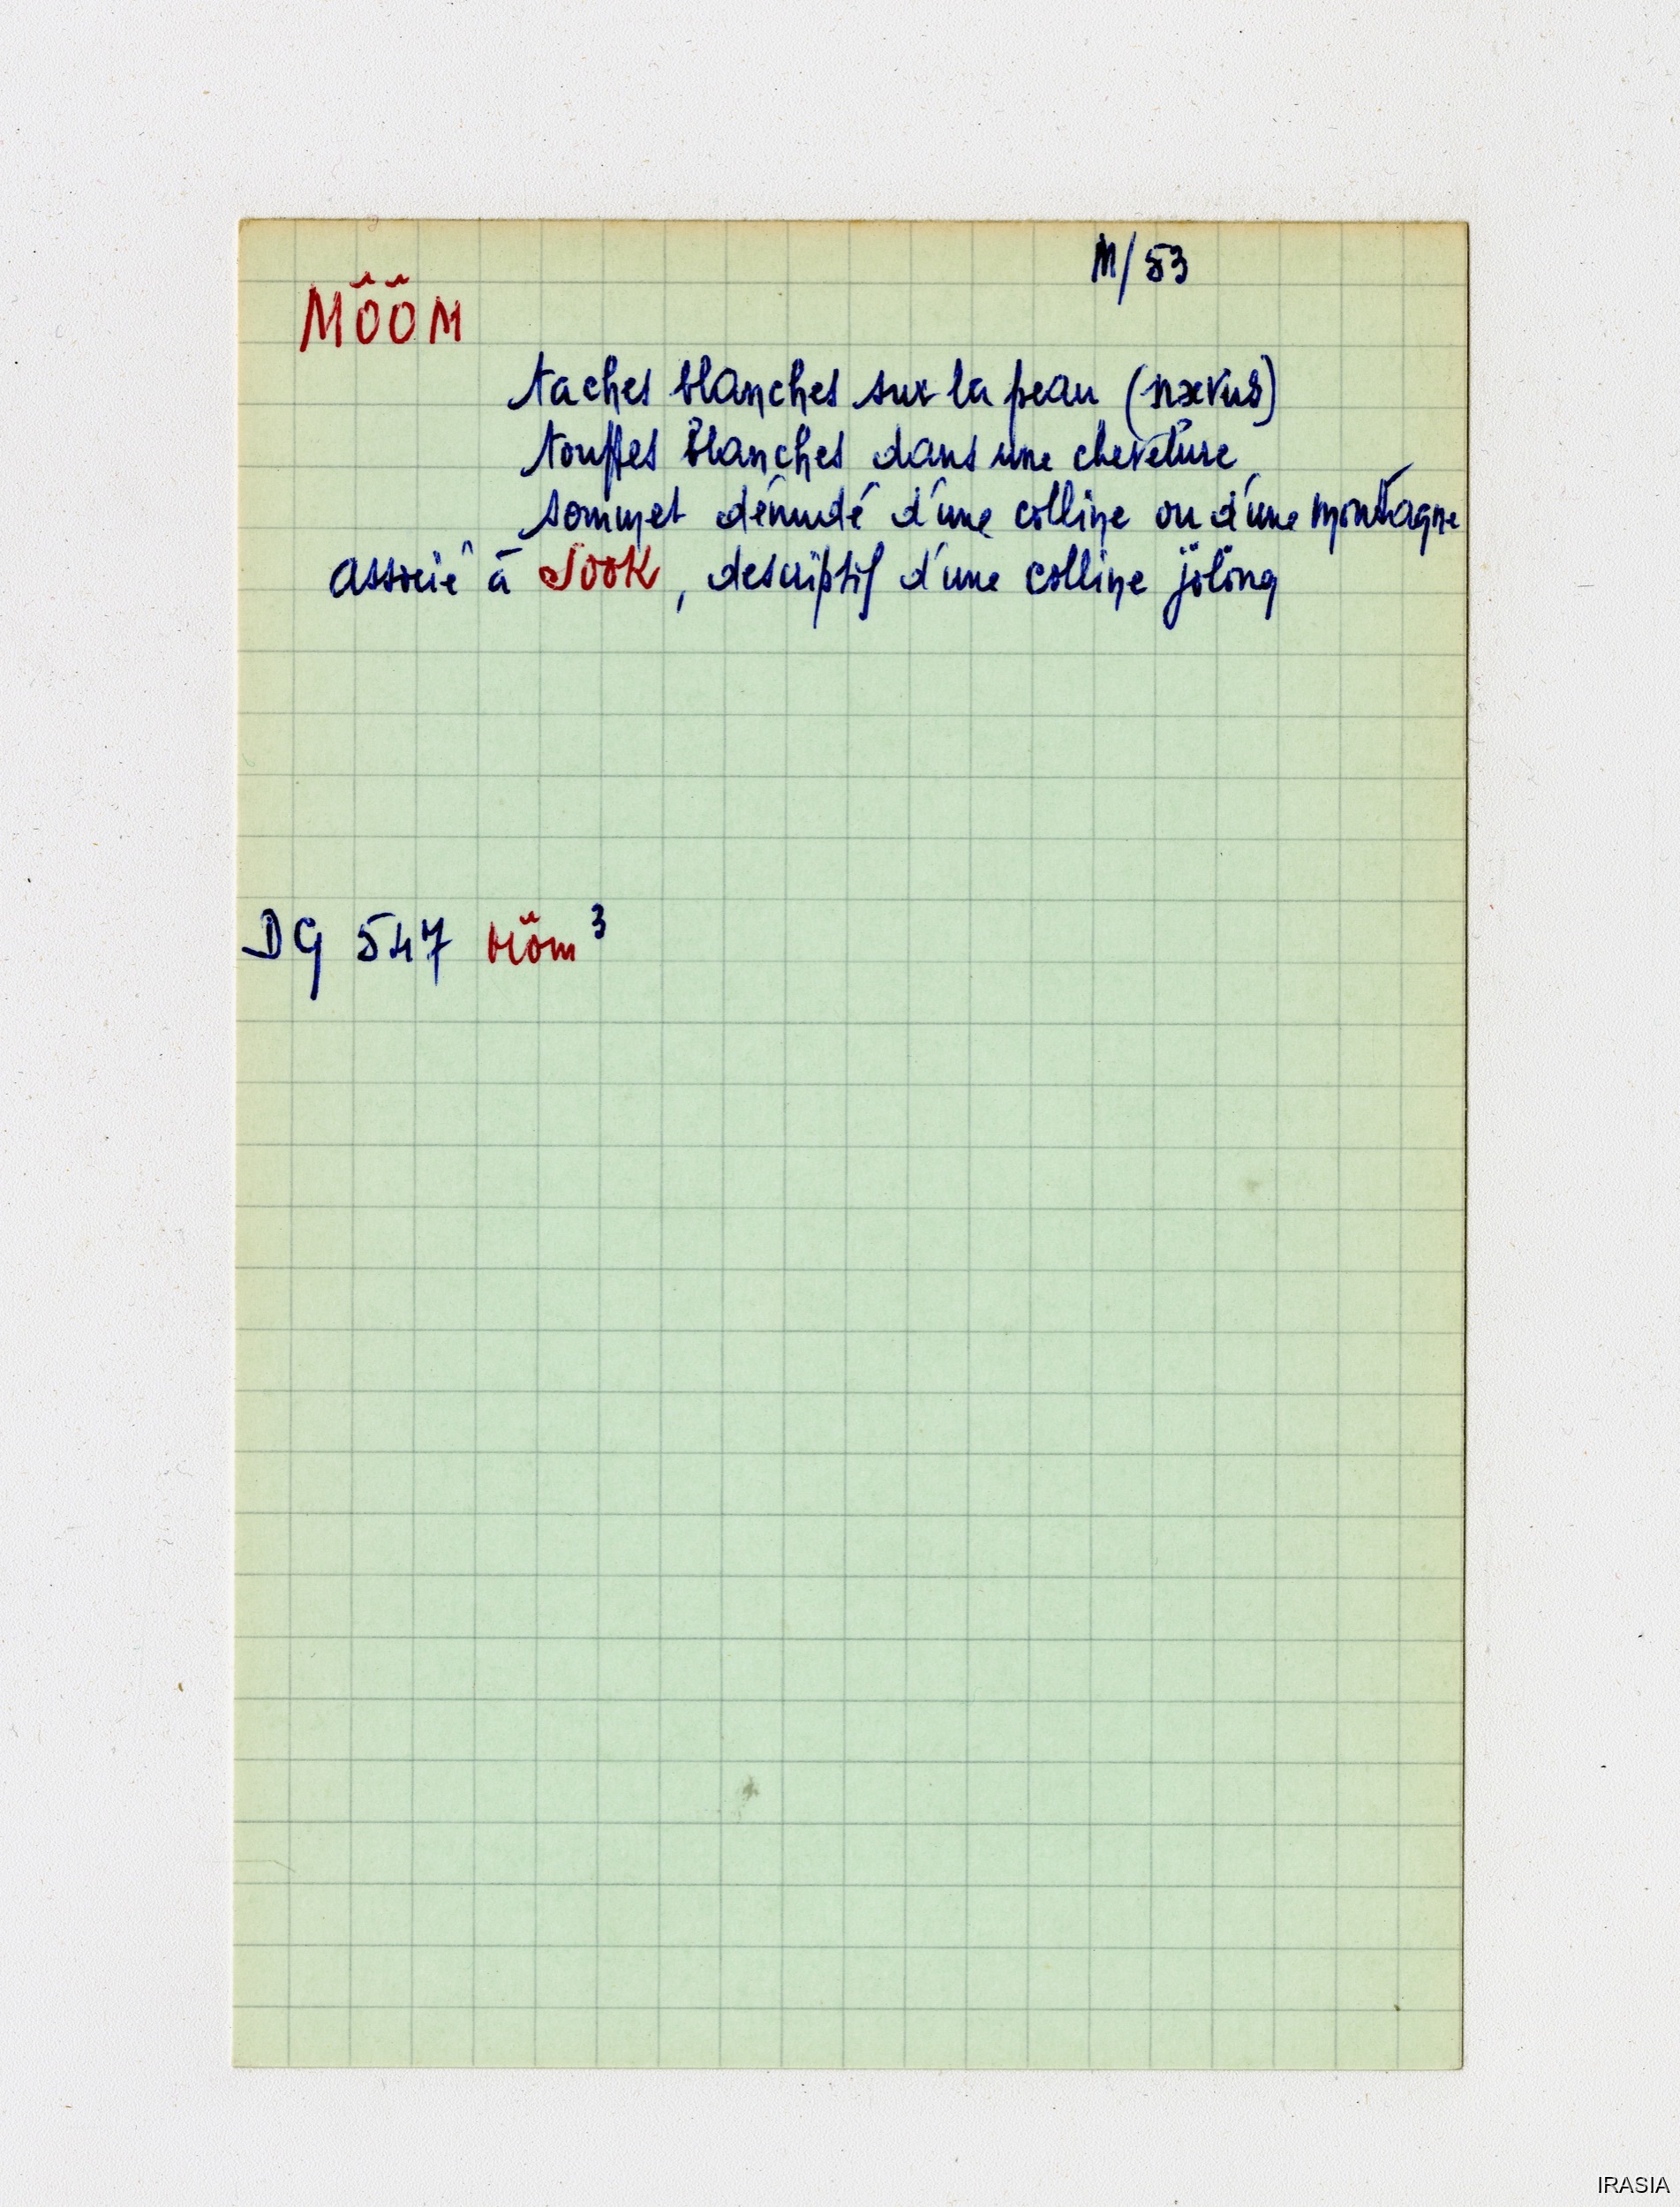 M/53
MÔÔM
taches blanches sur la peau (nævus)
touffes blanches dans une chevelure
sommet dénudé d'une colline ou d'une montagne
associé à SOOK, descriptif d'une colline jölöng
DG 547 Môm³
IRASIA